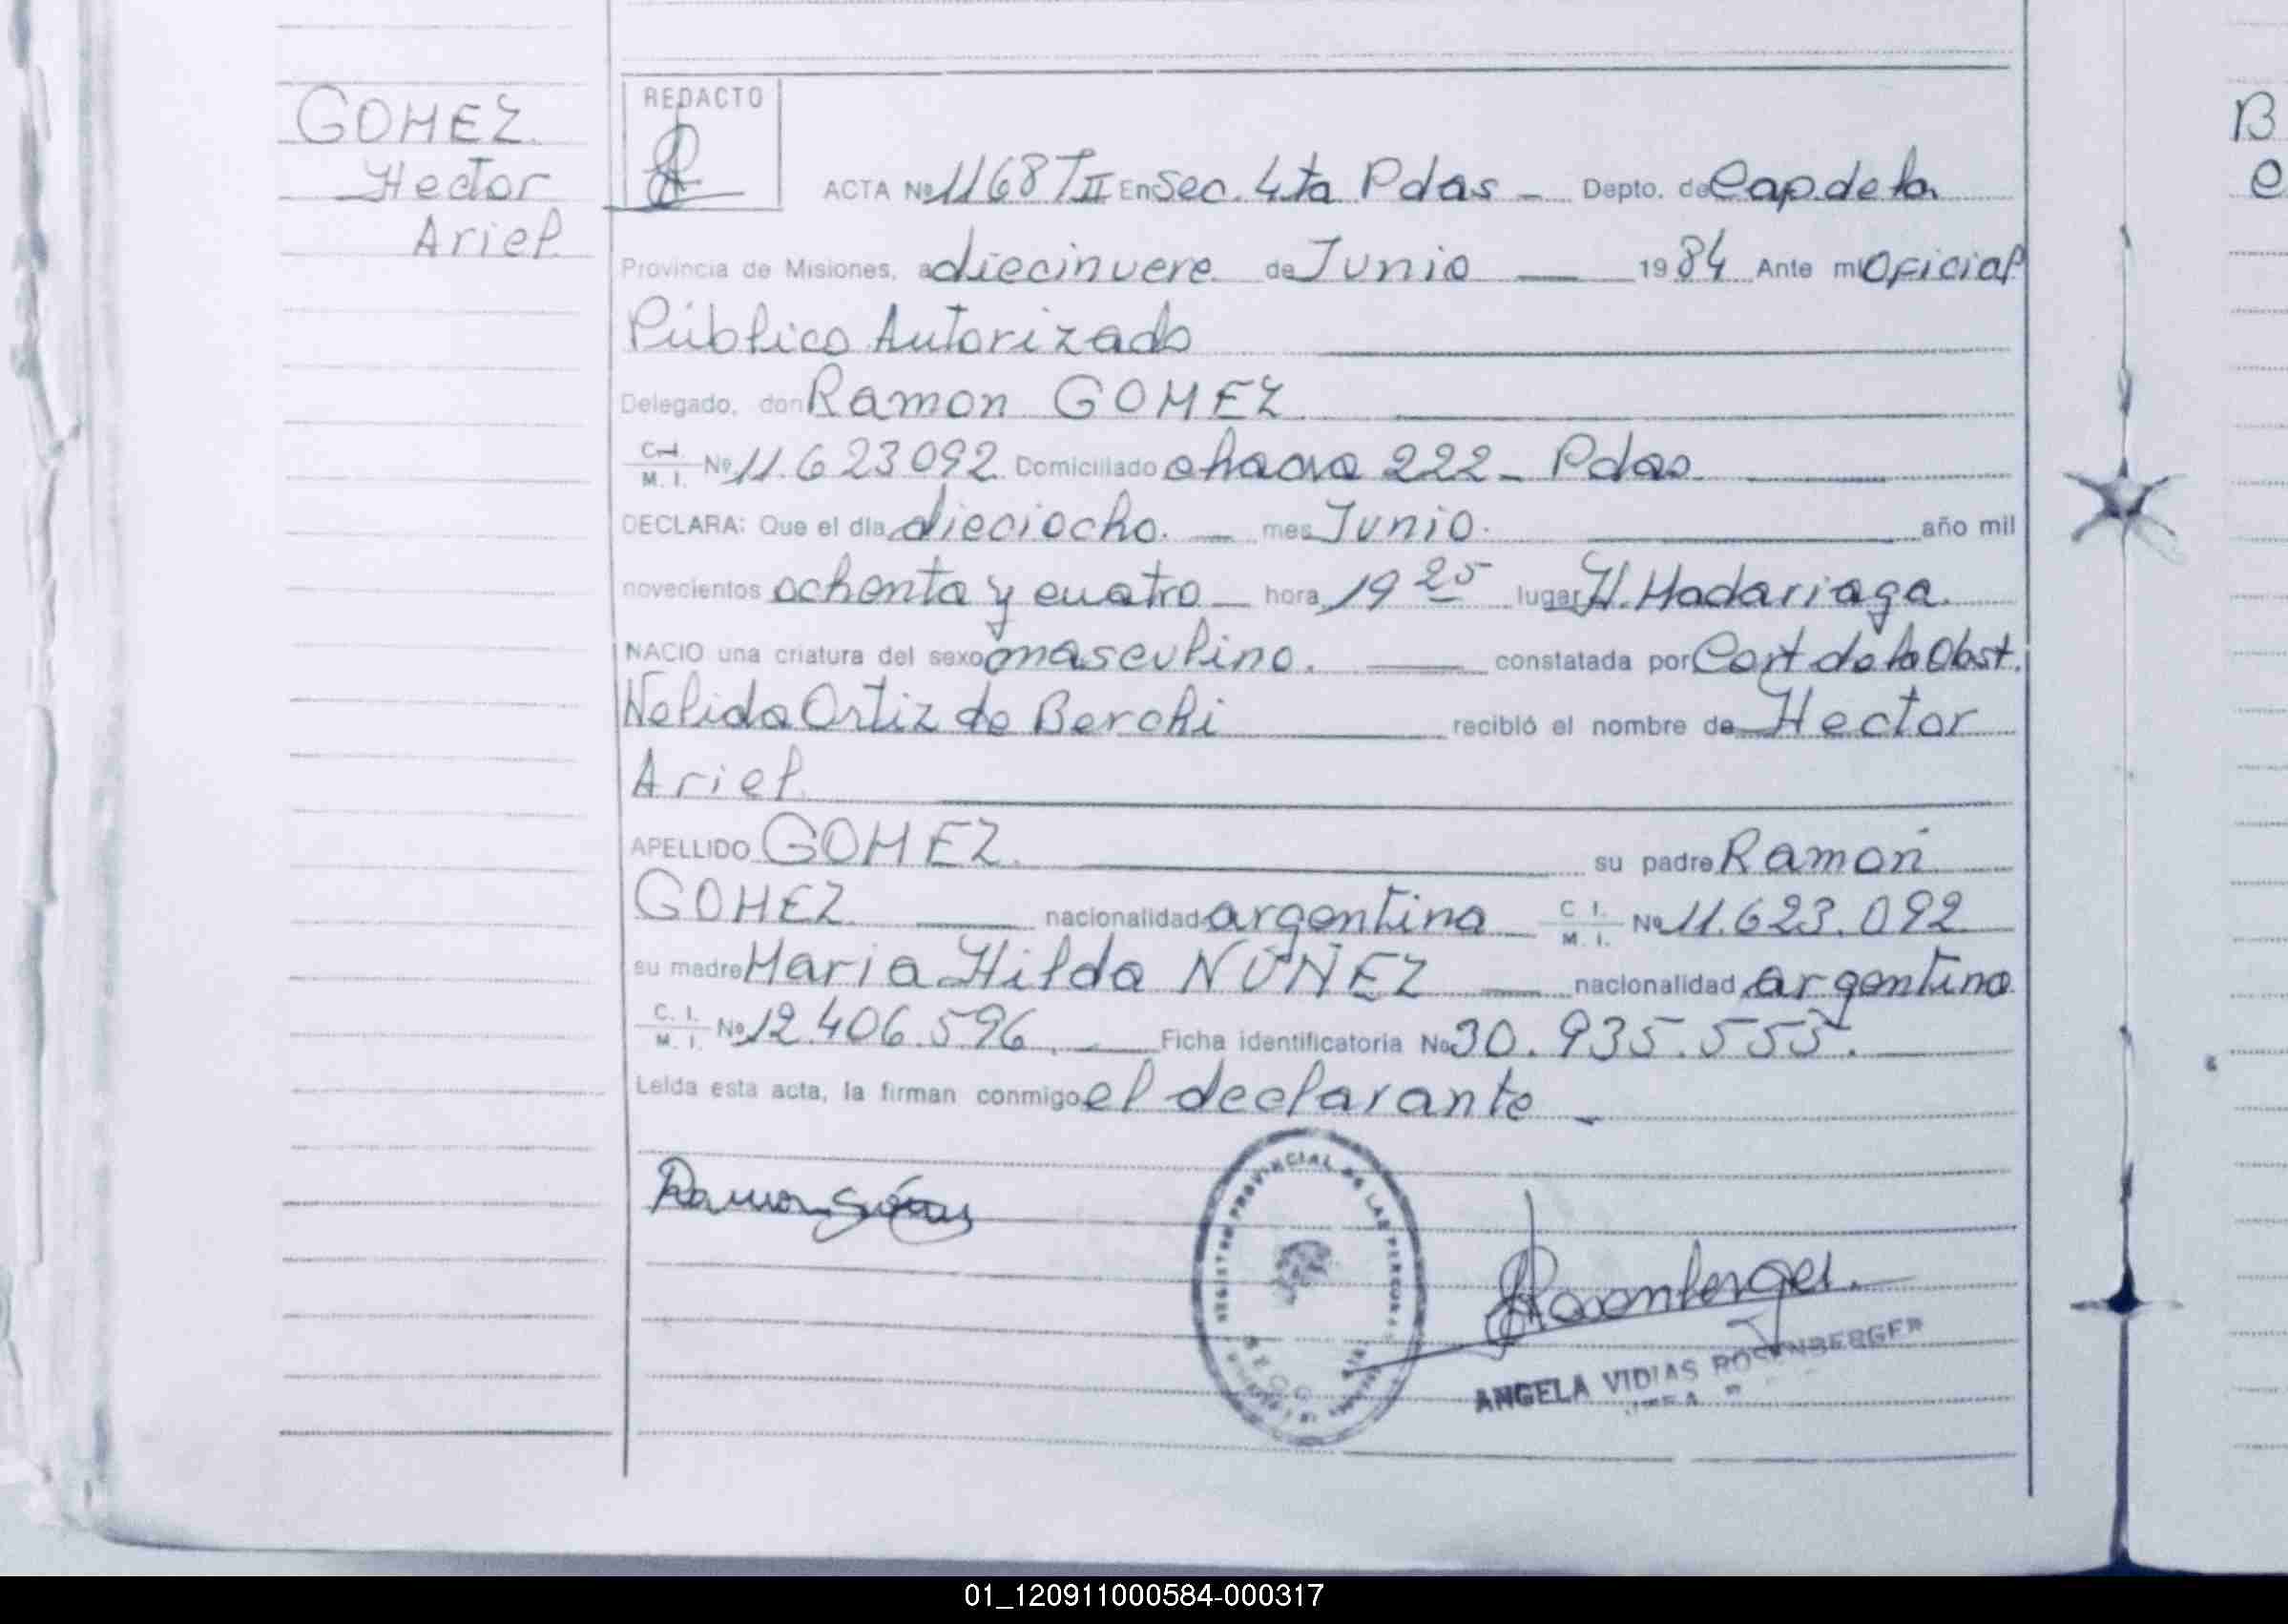 GOMEZ
Hector
Ariel
REDACTO
ACTA Nº 1168 T II En Sec. 4ta Pdas - Depto. de Cap. de la
Provincia de Misiones, a diecinueve de Junio 1984 Ante mi Oficial
Público Autorizado
Delegado, don Ramon GOMEZ
C.I. M. I. Nº 11.623092 Domiciliado chacra 222 - Pdas.
DECLARA: Que el día dieciocho. mes Junio. año mil
novecientos ochenta y cuatro hora 19 25 lugar H. Madariaga.
NACIO una criatura del sexo masculino. constatada por Cert de la Obst.
Nelida Ortiz de Berchi recibió el nombre de Hector
Ariel
APELLIDO GOMEZ. su padre Ramon
GOMEZ nacionalidad argentina C I. M. I. Nº 11.623.092
su madre Maria Hilda NUÑEZ nacionalidad argentina
C. I. M. I. Nº 12.406.596. Ficha identificatoria Nº 30.935.553.
Leída esta acta, la firman conmigo el declarante -
Ramon
REGISTRO PROVINCIAL DE LAS PERSONAS
Rosenberger.
ANGELA VIDIAS ROSENBERGER
B
01_120911000584-000317